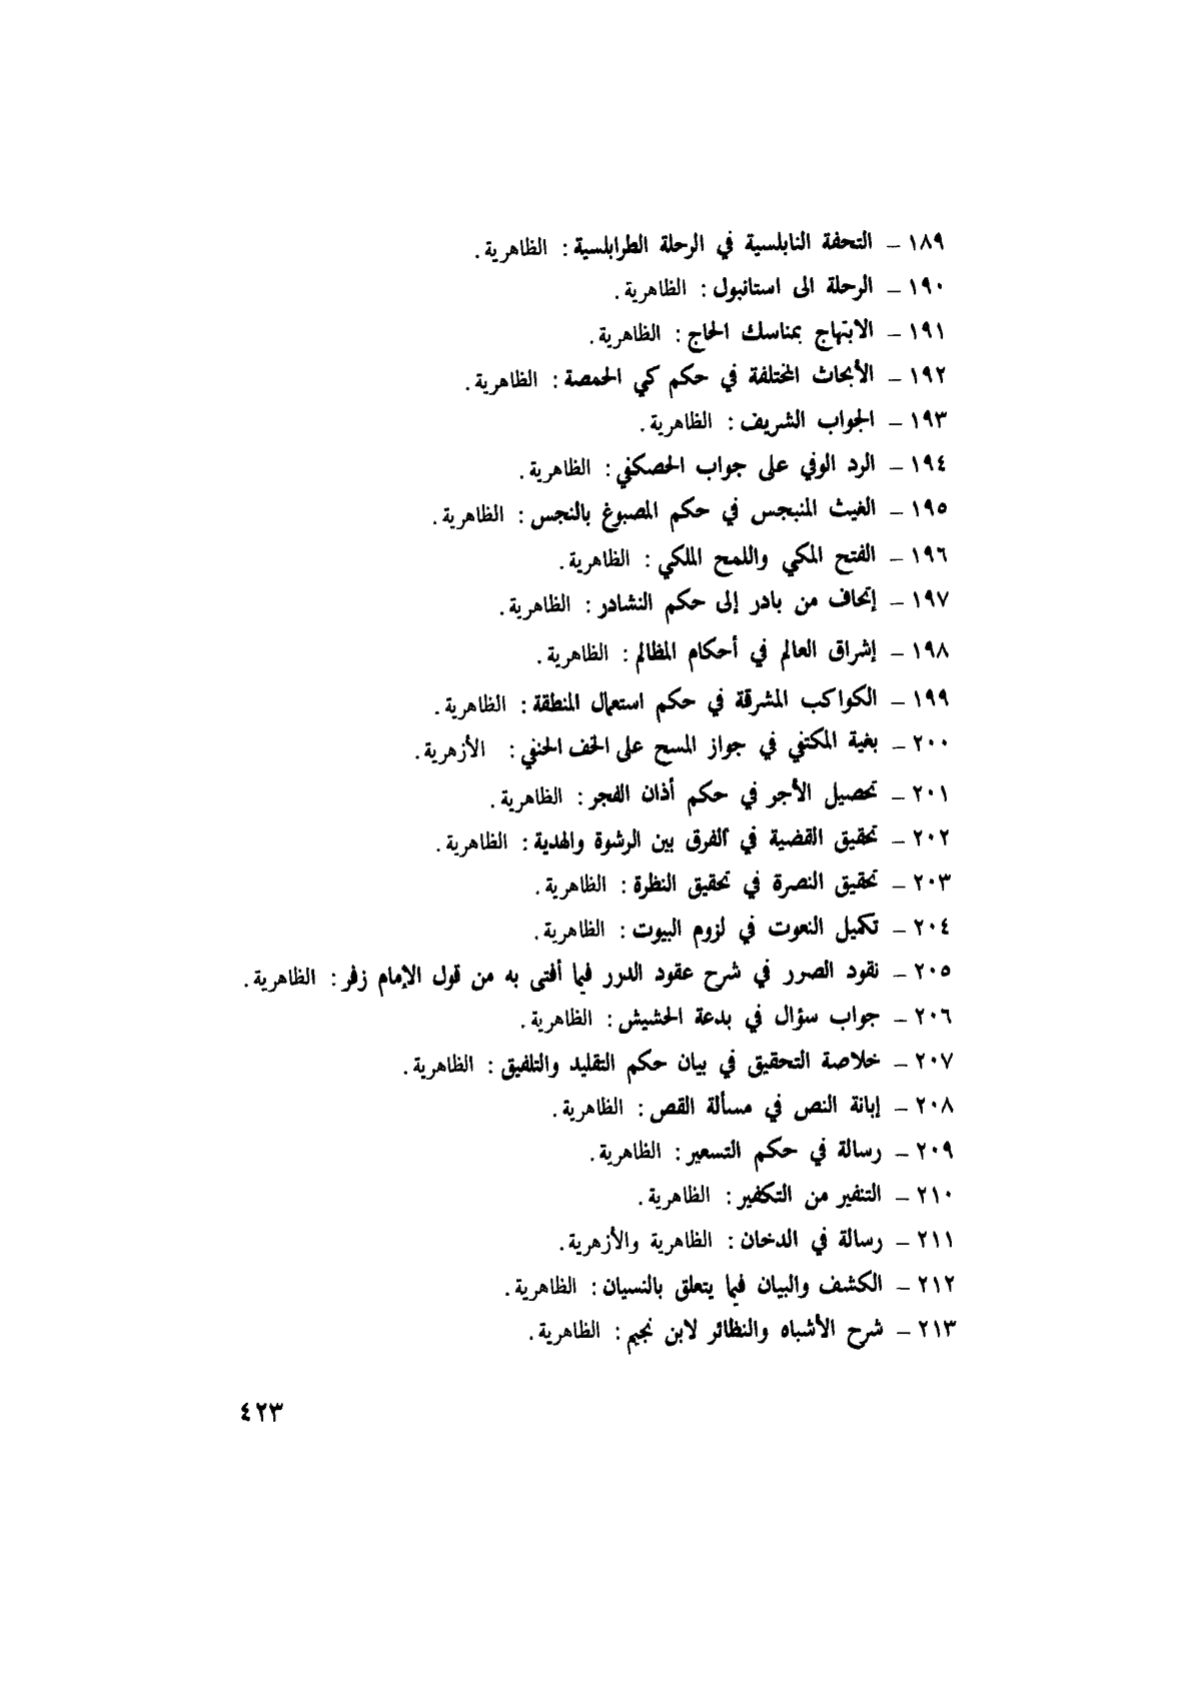 ١٨٩ – التحفة النابلسية في الرحلة الطرابلسية : الظاهرية .
١٩٠ – الرحلة الى استانبول : الظاهرية .
١٩١ – الابتهاج بمناسك الحاج : الظاهرية .
١٩٢ – الأبحاث المختلفة في حكم كي الحمصة : الظاهرية .
١٩٣ – الجواب الشريف : الظاهرية .
١٩٤ – الرد الوفي على جواب الحصكفي : الظاهرية .
١٩٥ – الغيث المنبجس في حكم المصبوغ بالنجس : الظاهرية .
١٩٦ – الفتح المكي واللمح الملكي : الظاهرية .
١٩٧ – إتحاف من بادر إلى حكم النشادر : الظاهرية .
١٩٨ – إشراق العالم في أحكام المظالم : الظاهرية .
١٩٩ – الكواكب المشرقة في حكم استعمال المنطقة : الظاهرية .
٢٠٠ – بغية المكتفي في جواز المسح على الخف الحنفي : الأزهرية .
٢٠١ – تحصيل الأجر في حكم أذان الفجر : الظاهرية .
٢٠٢ – تحقيق القضية في الفرق بين الرشوة والهدية : الظاهرية .
٢٠٣ – تحقيق النصرة في تحقيق النظرة : الظاهرية .
٢٠٤ – تكميل النعوت في لزوم البيوت : الظاهرية .
٢٠٥ – نقود الصرر في شرح عقود الدرر فيما أفتى به من قول الإمام زفر : الظاهرية .
٢٠٦ – جواب سؤال في بدعة الحشيش : الظاهرية .
٢٠٧ – خلاصة التحقيق في بيان حكم التقليد والتلفيق : الظاهرية .
٢٠٨ – إبانة النص في مسألة القص : الظاهرية .
٢٠٩ – رسالة في حكم التسعير : الظاهرية .
٢١٠ – التنفير من التكفير : الظاهرية .
٢١١ – رسالة في الدخان : الظاهرية والأزهرية .
٢١٢ – الكشف والبيان فيما يتعلق بالنسيان : الظاهرية .
٢١٣ – شرح الأشباه والنظائر لابن نجيم : الظاهرية .
٤٢٣